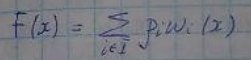 F(x) = ∑_{i∈I} ρ_i w_i(x)